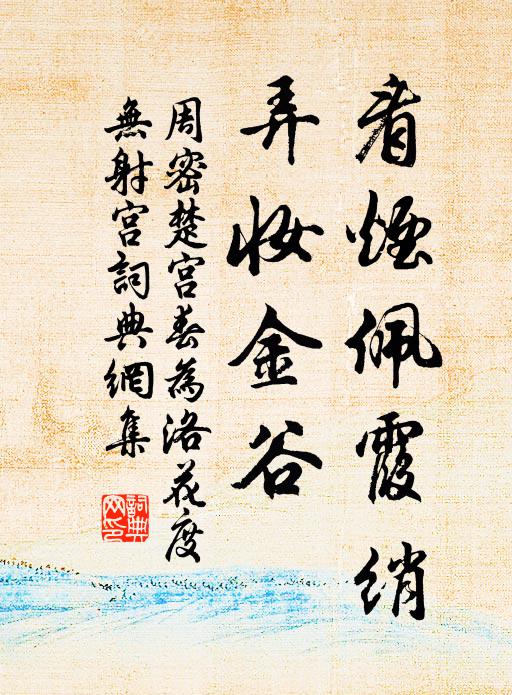 看煙佩霞綃
弄妝金谷
周密楚宮春為洛花度
無射宮詞典網集
詞典網印